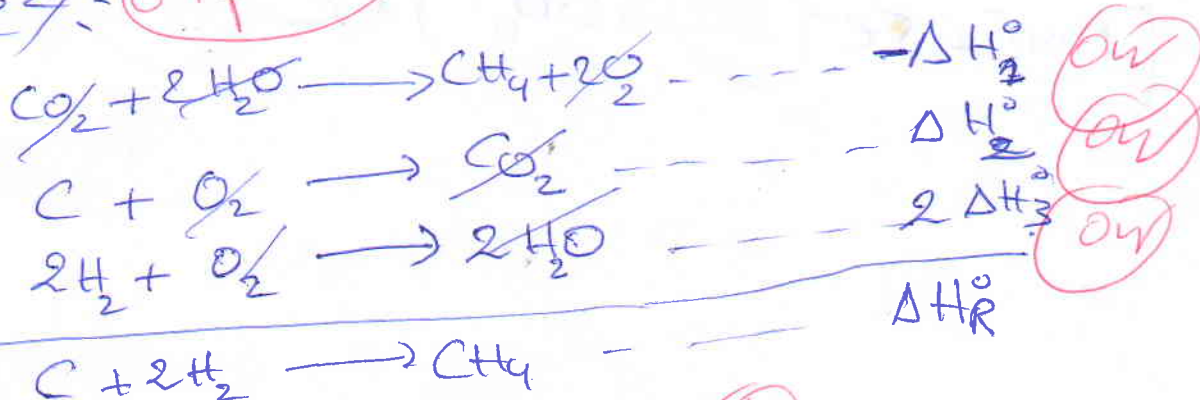 CO₂ + 2H₂O → CH₄ + 2O₂ - - - - -ΔH₁°
C + O₂ → CO₂ - - - - ΔH₂°
2H₂ + O₂ → 2H₂O - - - - 2ΔH₃°
C + 2H₂ → CH₄ - - ΔH°R